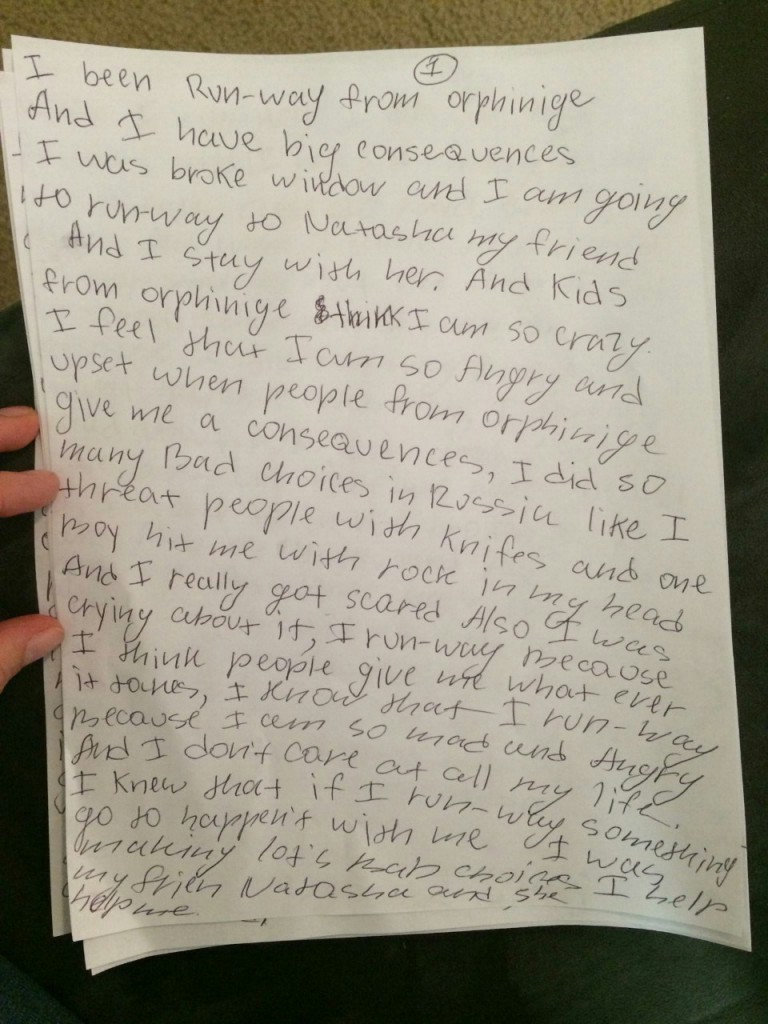 1
I been Run-way from orphinige
And I have big consequences
I was broke window and I am going
to run-way to Natasha my friend
And I stay with her. And Kids
from orphinige think I am so crazy.
I feel that I am so Angry and
upset when people from orphinige
give me a consequences, I did so
many Bad choices in Russia like I
threat people with Knifes and one
Boy hit me with rock in my head
And I really got scared Also I was
crying about it, I run-way Because
I think people give me what ever
it takes, I know that I run-way
Because I am so mad and Angry
And I don't care at all my life.
I Knew that if I run-way something
go to happen't with me I was
making lot's Bad choices I help
my frien Natasha and she help
help me.